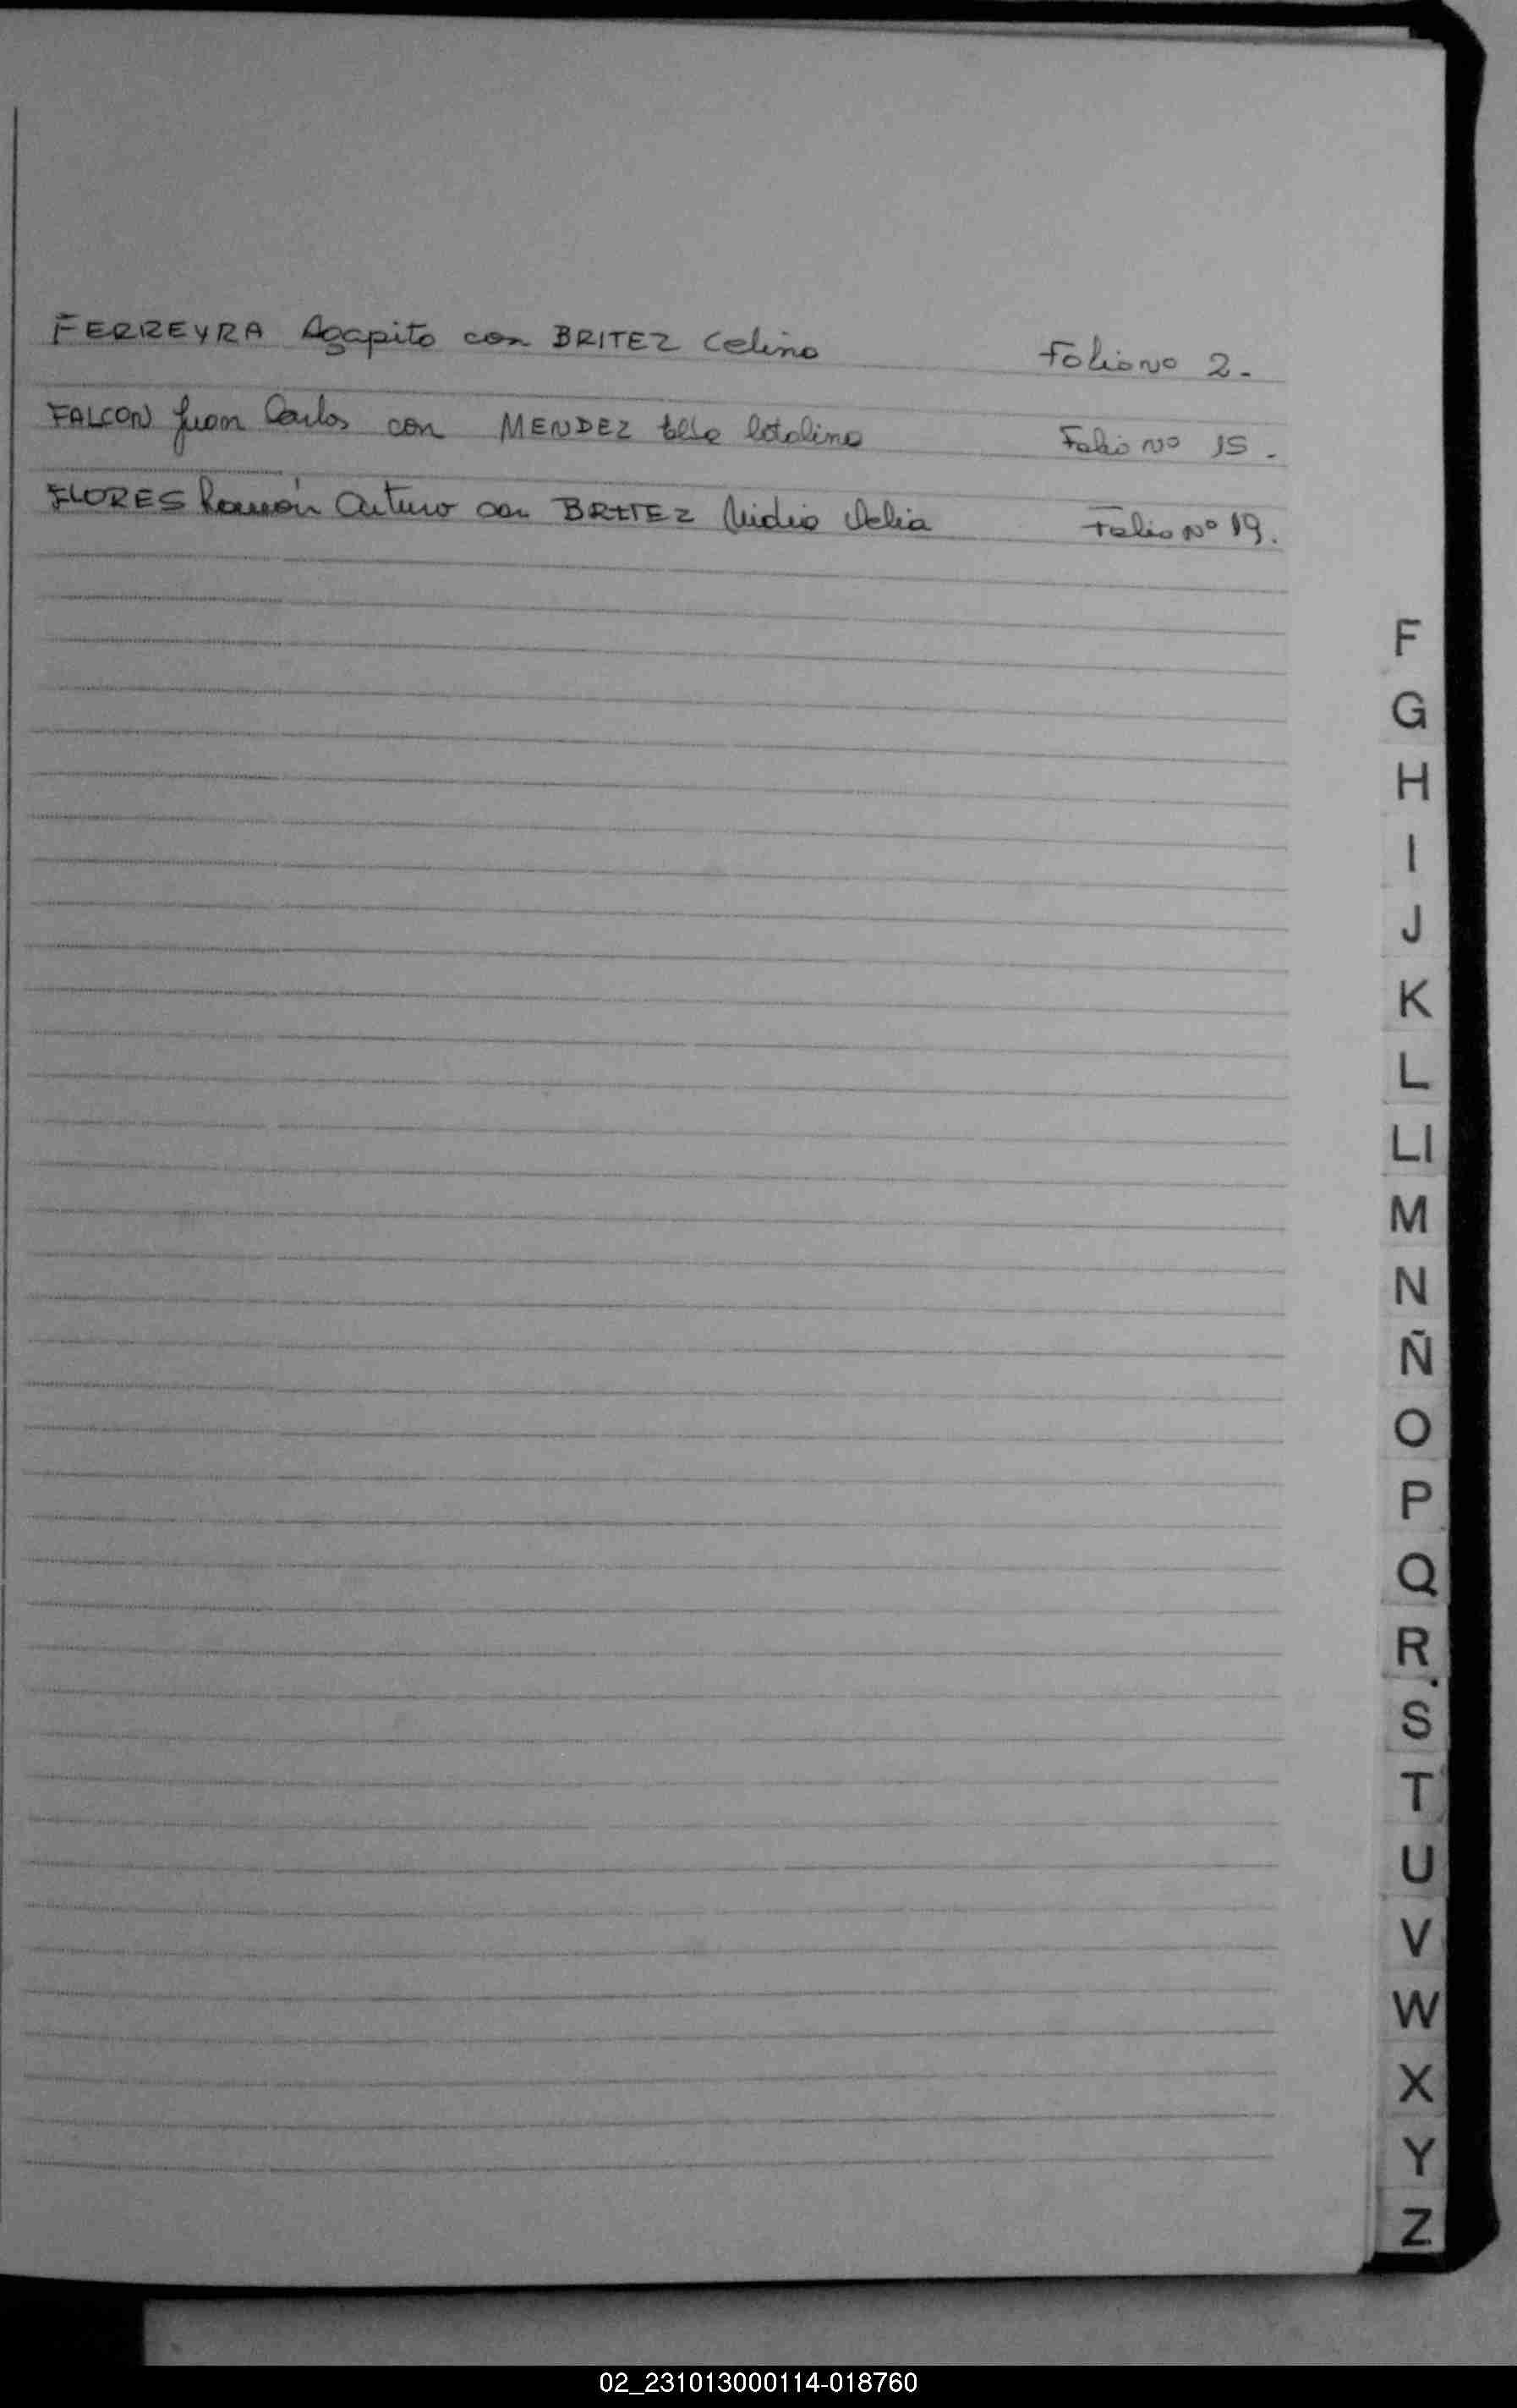 FERREYRA Agapito con BRITEZ Celina Folio Nº 2.
FALCON Juan Carlos con MENDEZ Catalina Folio Nº 15.
FLORES Ramón Arturo con BRITEZ Lidia Delia Folio Nº 19.
F
G
H
I
J
K
L
Ll
M
N
Ñ
O
P
Q
R
S
T
U
V
W
X
Y
Z
02_231013000114-018760